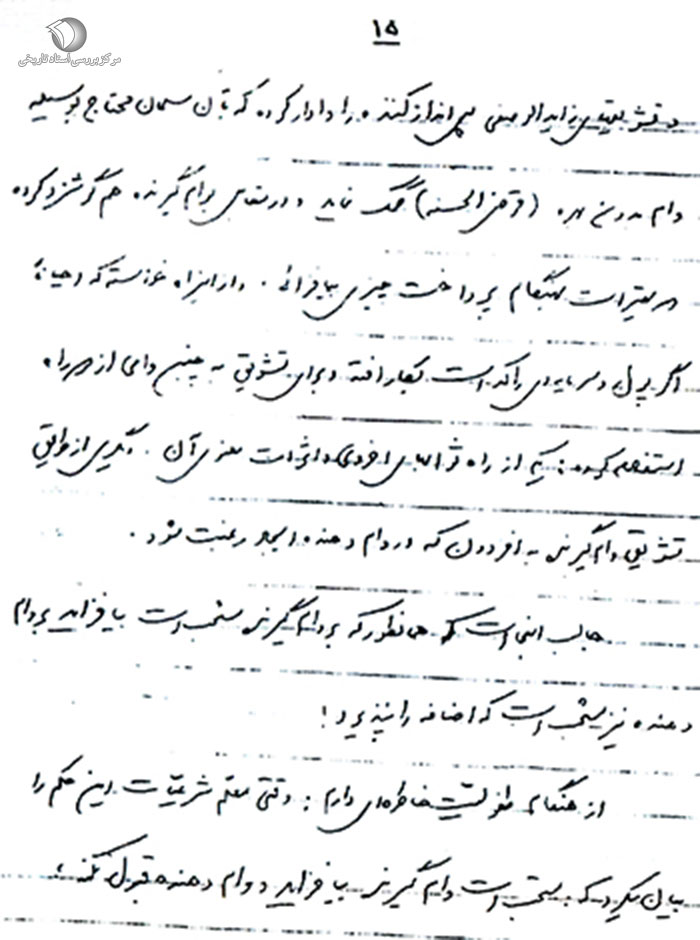 ۱۵
مرکز بررسی اسناد تاریخی
و تشویقهای زایدالوصفی پس انداز کننده را وادار کرده که بآن مسلمان محتاج بوسیله
وام بدون بهره (قرض الحسنه) کمک نماید و در مقابل بوام گیرنده هم گوشزد کرده
بهتر است هنگام پرداخت چیزی بیافزائی . و از اینراه خواسته که احیاناً
اگر پول و سرمایه‌ای راکد است بکار افتد و برای تشویق به چنین وامی از دو راه
استفاده کرده : یکی از راه ثوابهای اخروی و اثرات معنوی آن . دیگری از طریق
تشویق وام گیرنده به افزودن که در وام دهنده ایجاد رغبت شود .
جالب اینجا است که همانطور که بر وام گیرنده مستحب است بیافزاید بر وام
دهنده نیز مستحب است که اضافه را نپذیرد !
از هنگام طفولیت خاطره‌ای دارم : وقتی معلم شرعیات این حکم را
بیان میکرد که مستحب است وام گیرنده بیافزاید و وام دهنده قبول نکند ،